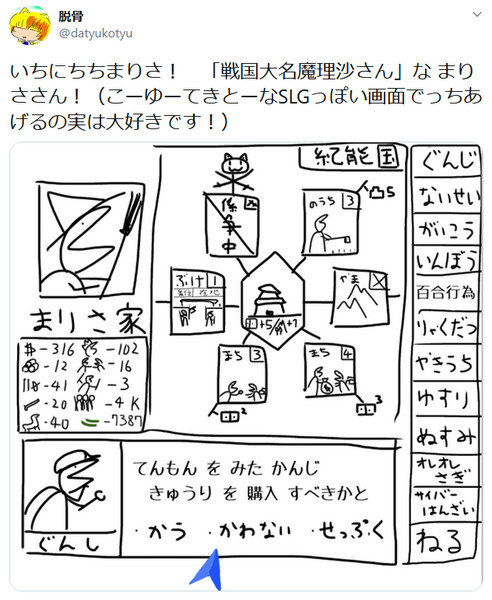 脱骨
@datyukotyu
いちにちちまりさ！　「戦国大名魔理沙さん」な まり
ささん！（こーゆーてきとーなSLGっぽい画面でっちあ
げるの実は大好きです！）
係争中
のうち 3
5
ぶけ 1
やま
+5 +7
まち 3
2
まち 4
3
まりさ家
$-316 -102
-12 -16
-41 -3
-20 -4K
-40 -7387
ぐんじ
ないせい
がいこう
いんぼう
百合行為
りゃくだつ
やきうち
ゆすり
ぬすみ
オレオレ
さぎ
サイバー
はんざい
ねる
ぐんし
てんもん を みた かんじ
きゅうり を 購入 すべきかと
・かう ・かわない ・せっぷく